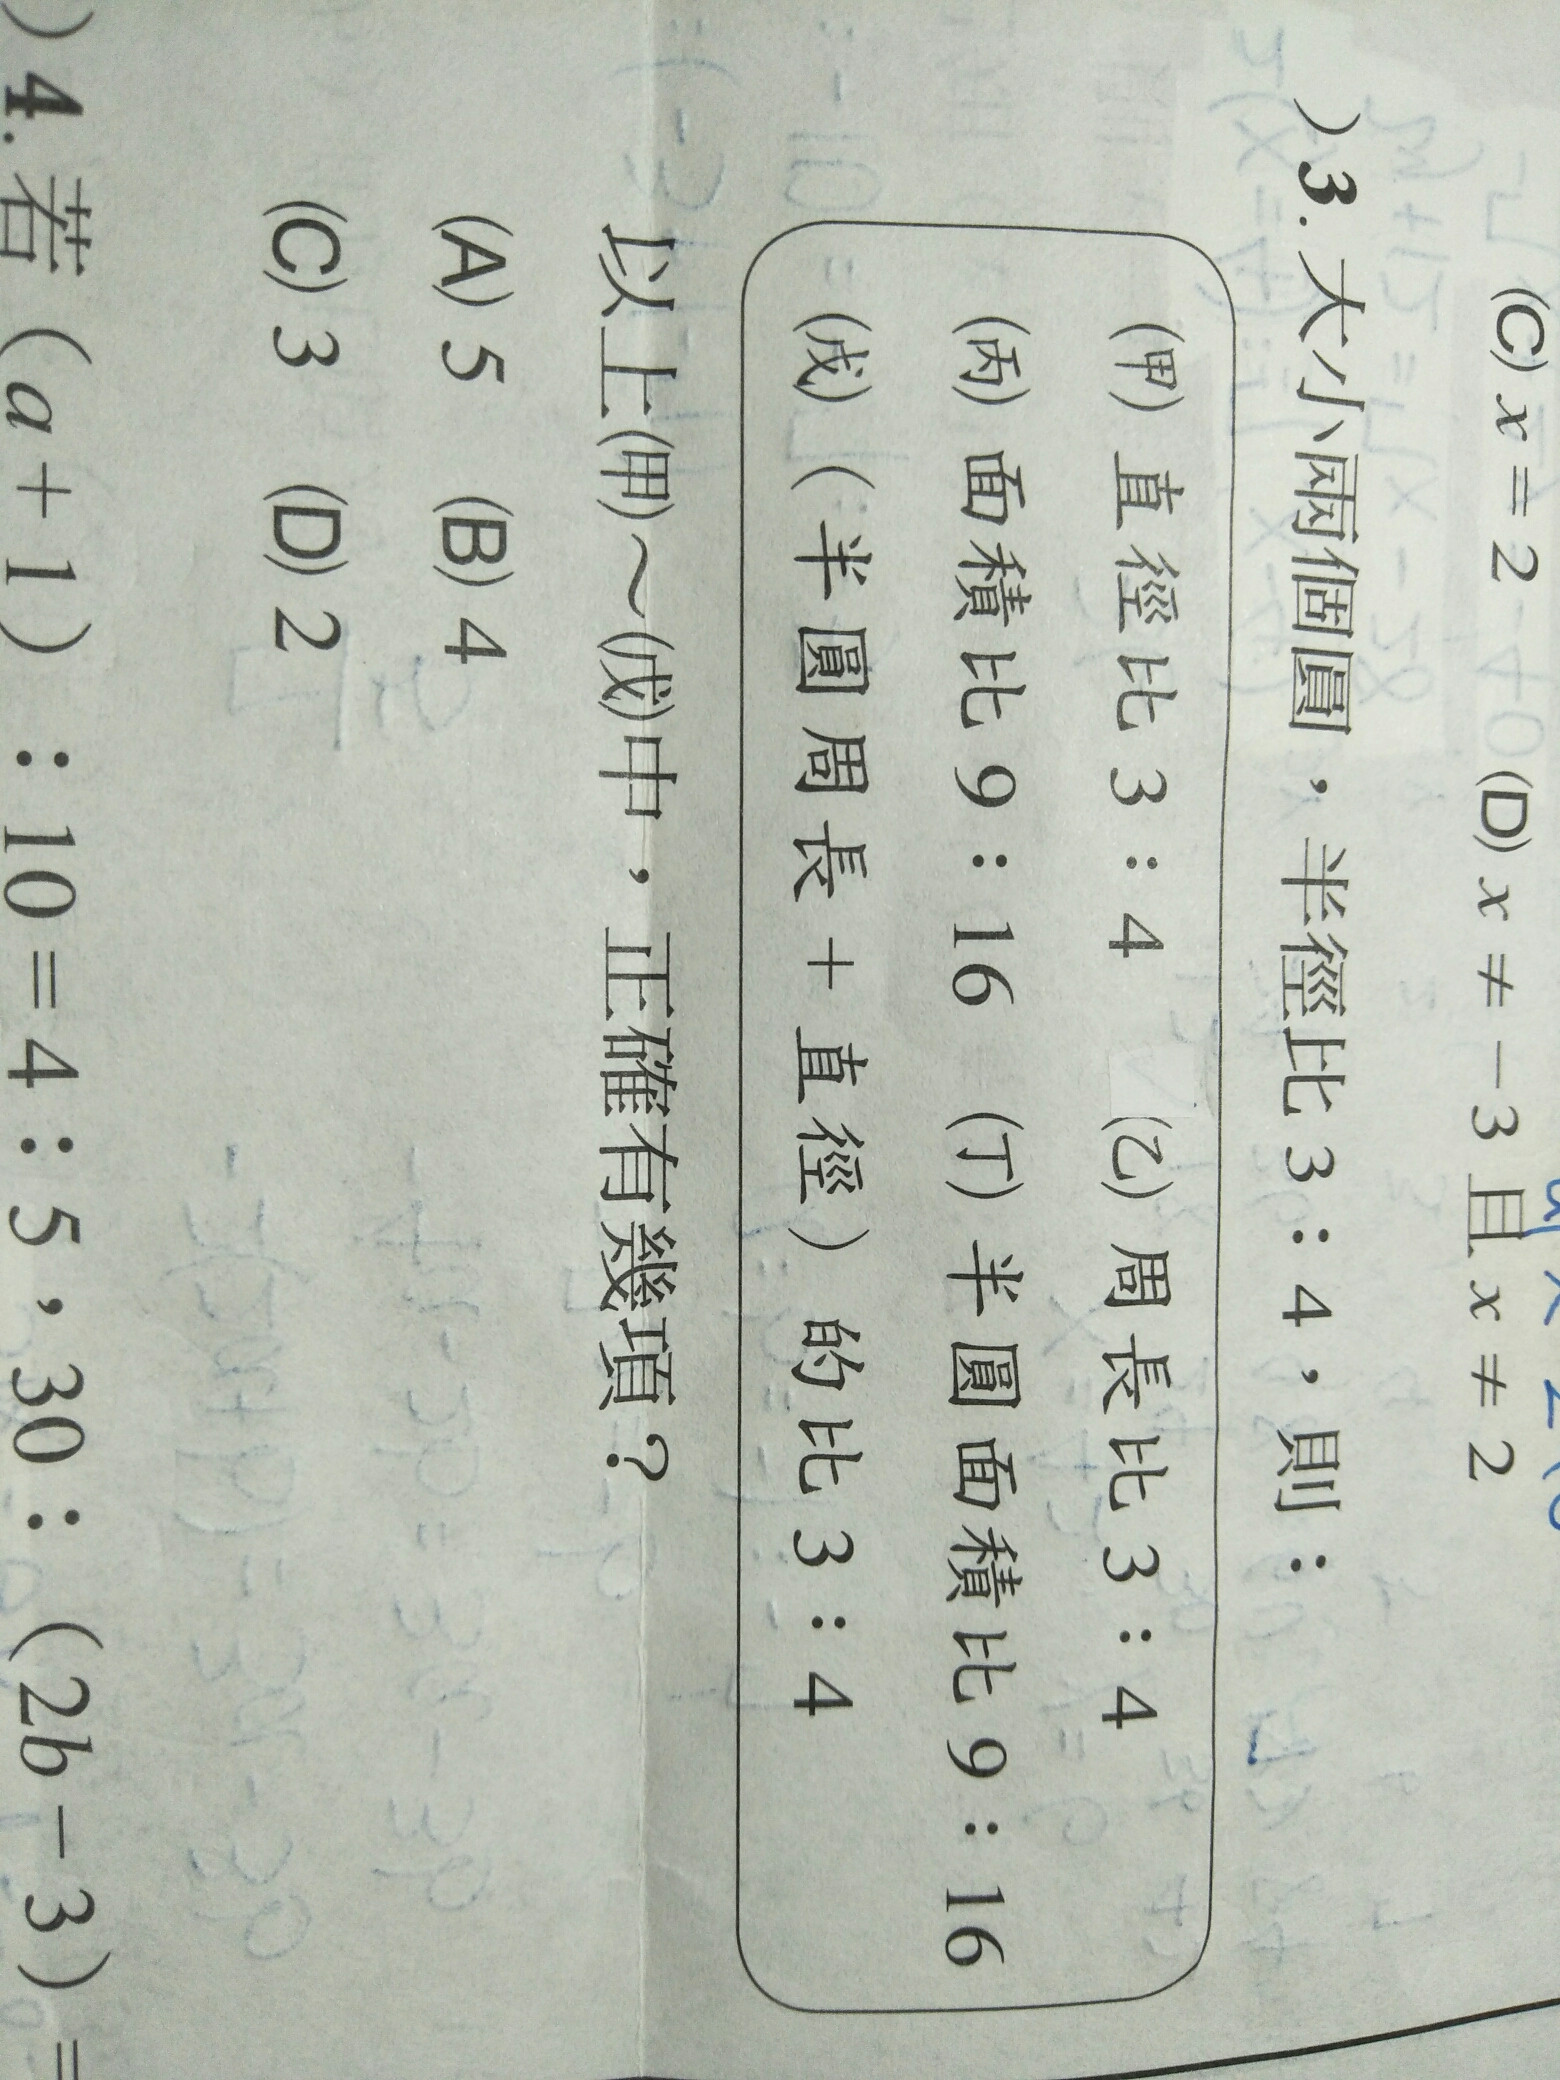 (C) x = 2 (D) x ≠ -3 且 x ≠ 2
)3. 大小兩個圓，半徑比 3：4，則：
(甲) 直徑比 3：4 (乙) 周長比 3：4
(丙) 面積比 9：16 (丁) 半圓面積比 9：16
(戊)（半圓周長＋直徑）的比 3：4
以上(甲)～(戊)中，正確有幾項？
(A) 5 (B) 4
(C) 3 (D) 2
)4. 若（a＋1）：10＝4：5，30：（2b－3）＝